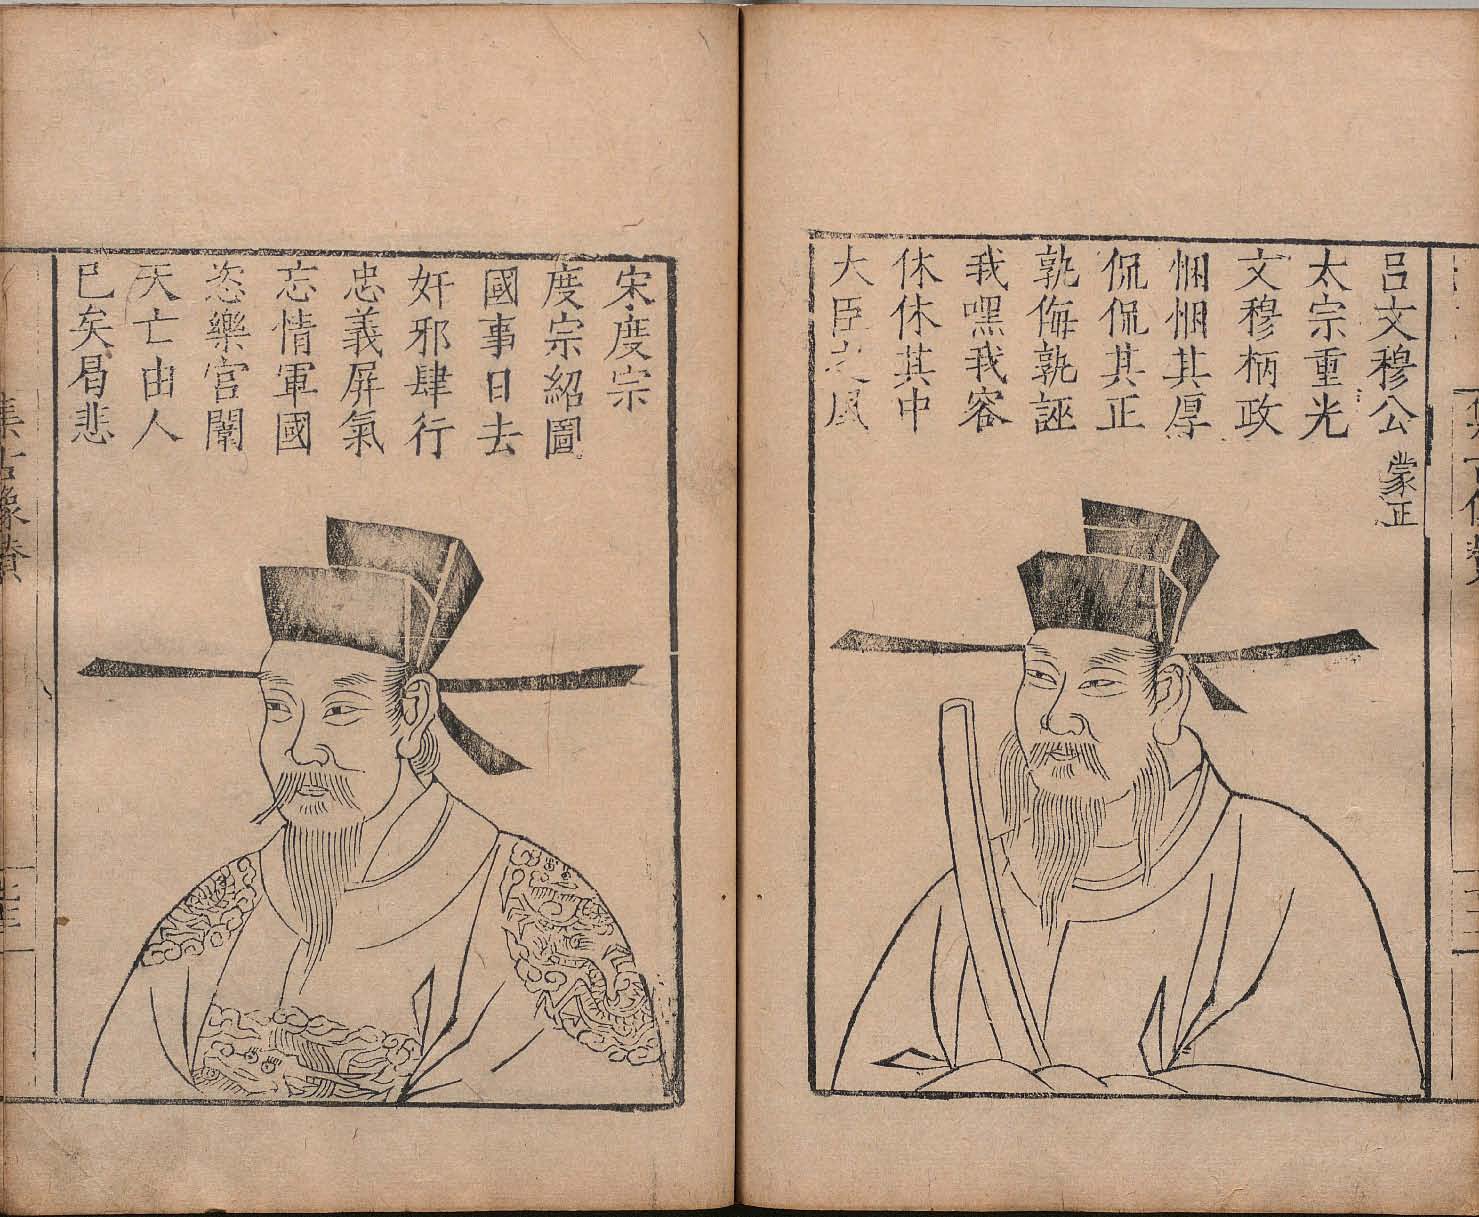 呂文穆公 蒙正
太宗重光
文穆柄政
悃悃其厚
侃侃其正
孰侮孰誣
我嘿我容
休休其中
大臣之風
宋度宗
度宗紹圖
國事日去
奸邪肆行
忠義屏氣
忘情軍國
恣樂宮闈
天亡由人
已矣胥悲
集古像贊